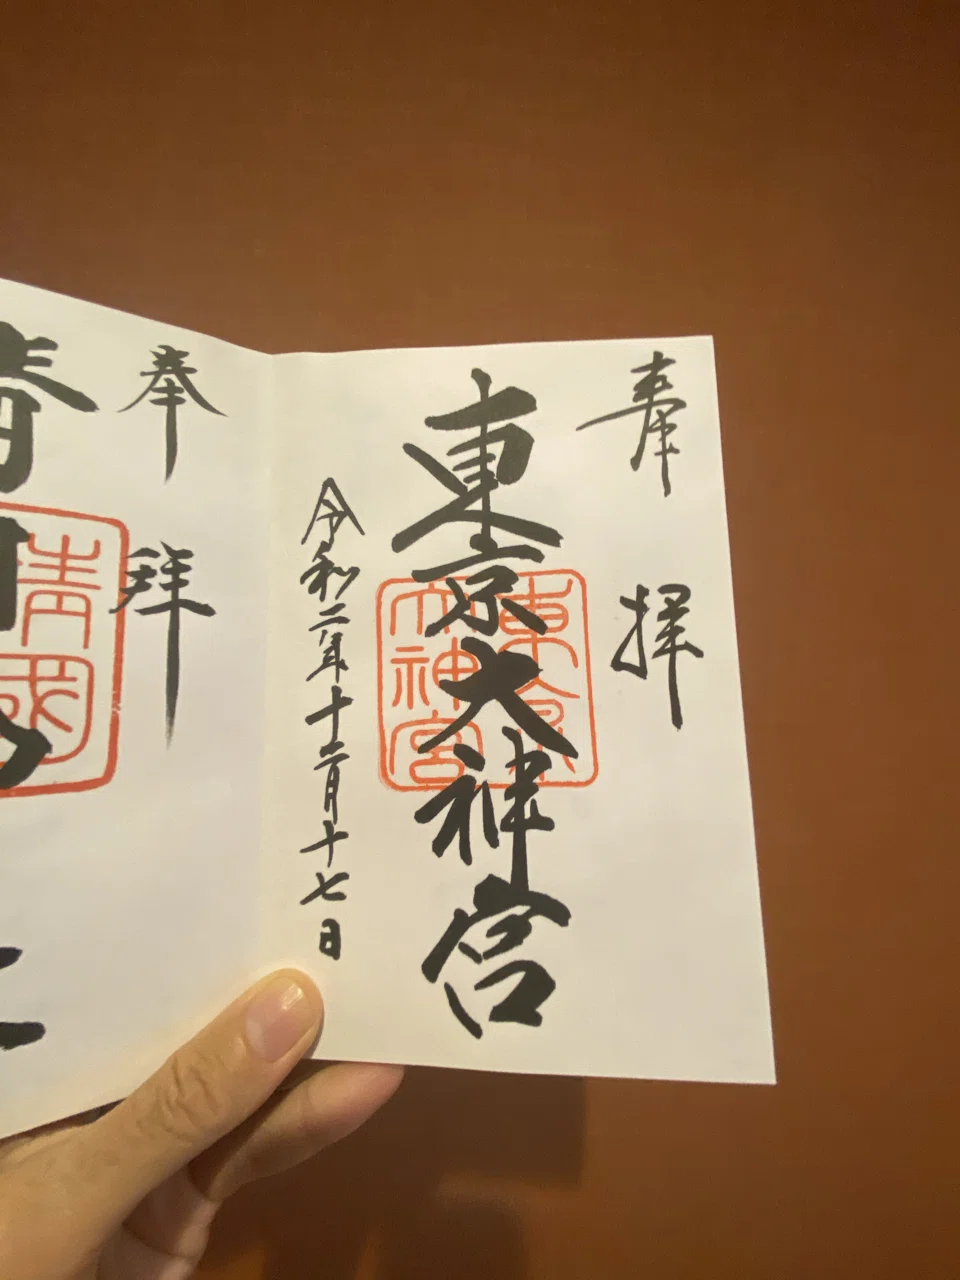 奉拝
東京大神宮
東京
大神宮
令和二年十二月十七日
奉拝
靖
靖國